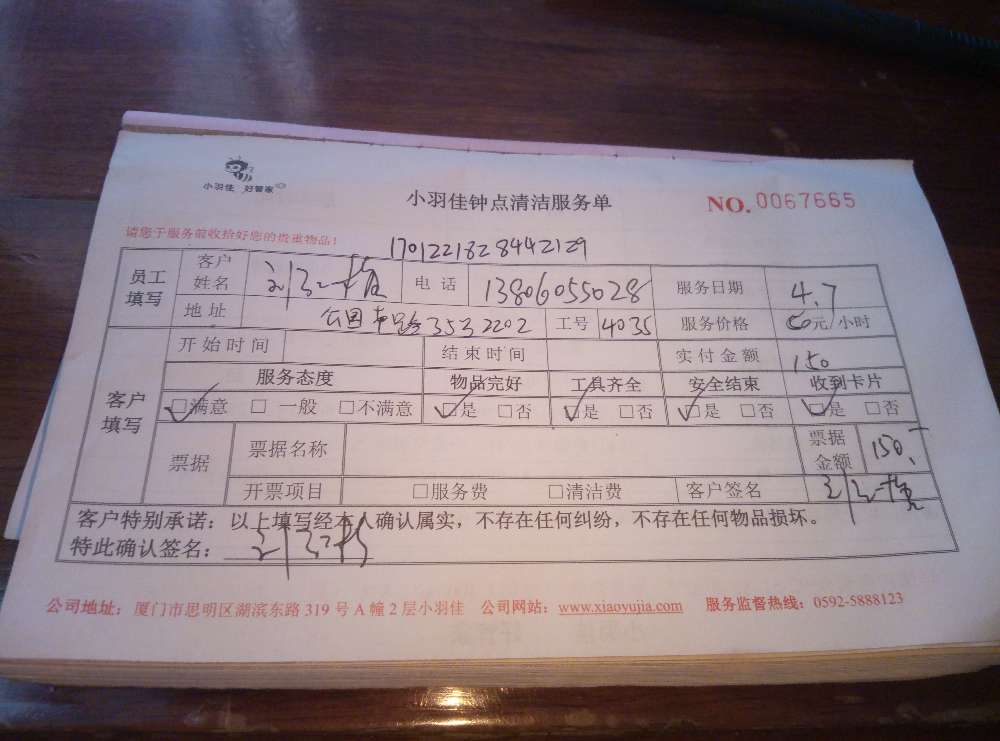 小羽佳 好管家
小羽佳钟点清洁服务单 NO. 0067665
请您于服务前收拾好您的贵重物品！
1701221828442129
员工填写 客户姓名 电话 13806055028 服务日期 4.7
地址 353 2202 工号 4035 服务价格 元/小时
客户填写 开始时间 结束时间 实付金额 150
服务态度 物品完好 工具齐全 安全结束 收到卡片
□满意 □一般 □不满意 □是 □否 □是 □否 □是 □否 □是 □否
票据 票据名称 票据金额 150
开票项目 □服务费 □清洁费 客户签名
客户特别承诺：以上填写经本人确认属实，不存在任何纠纷，不存在任何物品损坏。
特此确认签名：
公司地址：厦门市思明区湖滨东路 319 号 A 幢 2 层小羽佳 公司网站：www.xiaoyujia.com 服务监督热线：0592-5888123